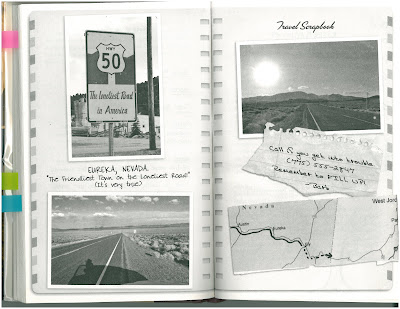 HWY
50
The Loneliest Road
in America
EUREKA, NEVADA.
"The Friendliest Town on the Loneliest Road"
(It's very true)
Travel Scrapbook
Call if you get into trouble
(775) 555-2847
Remember to FILL UP!
Nevada
West Jord